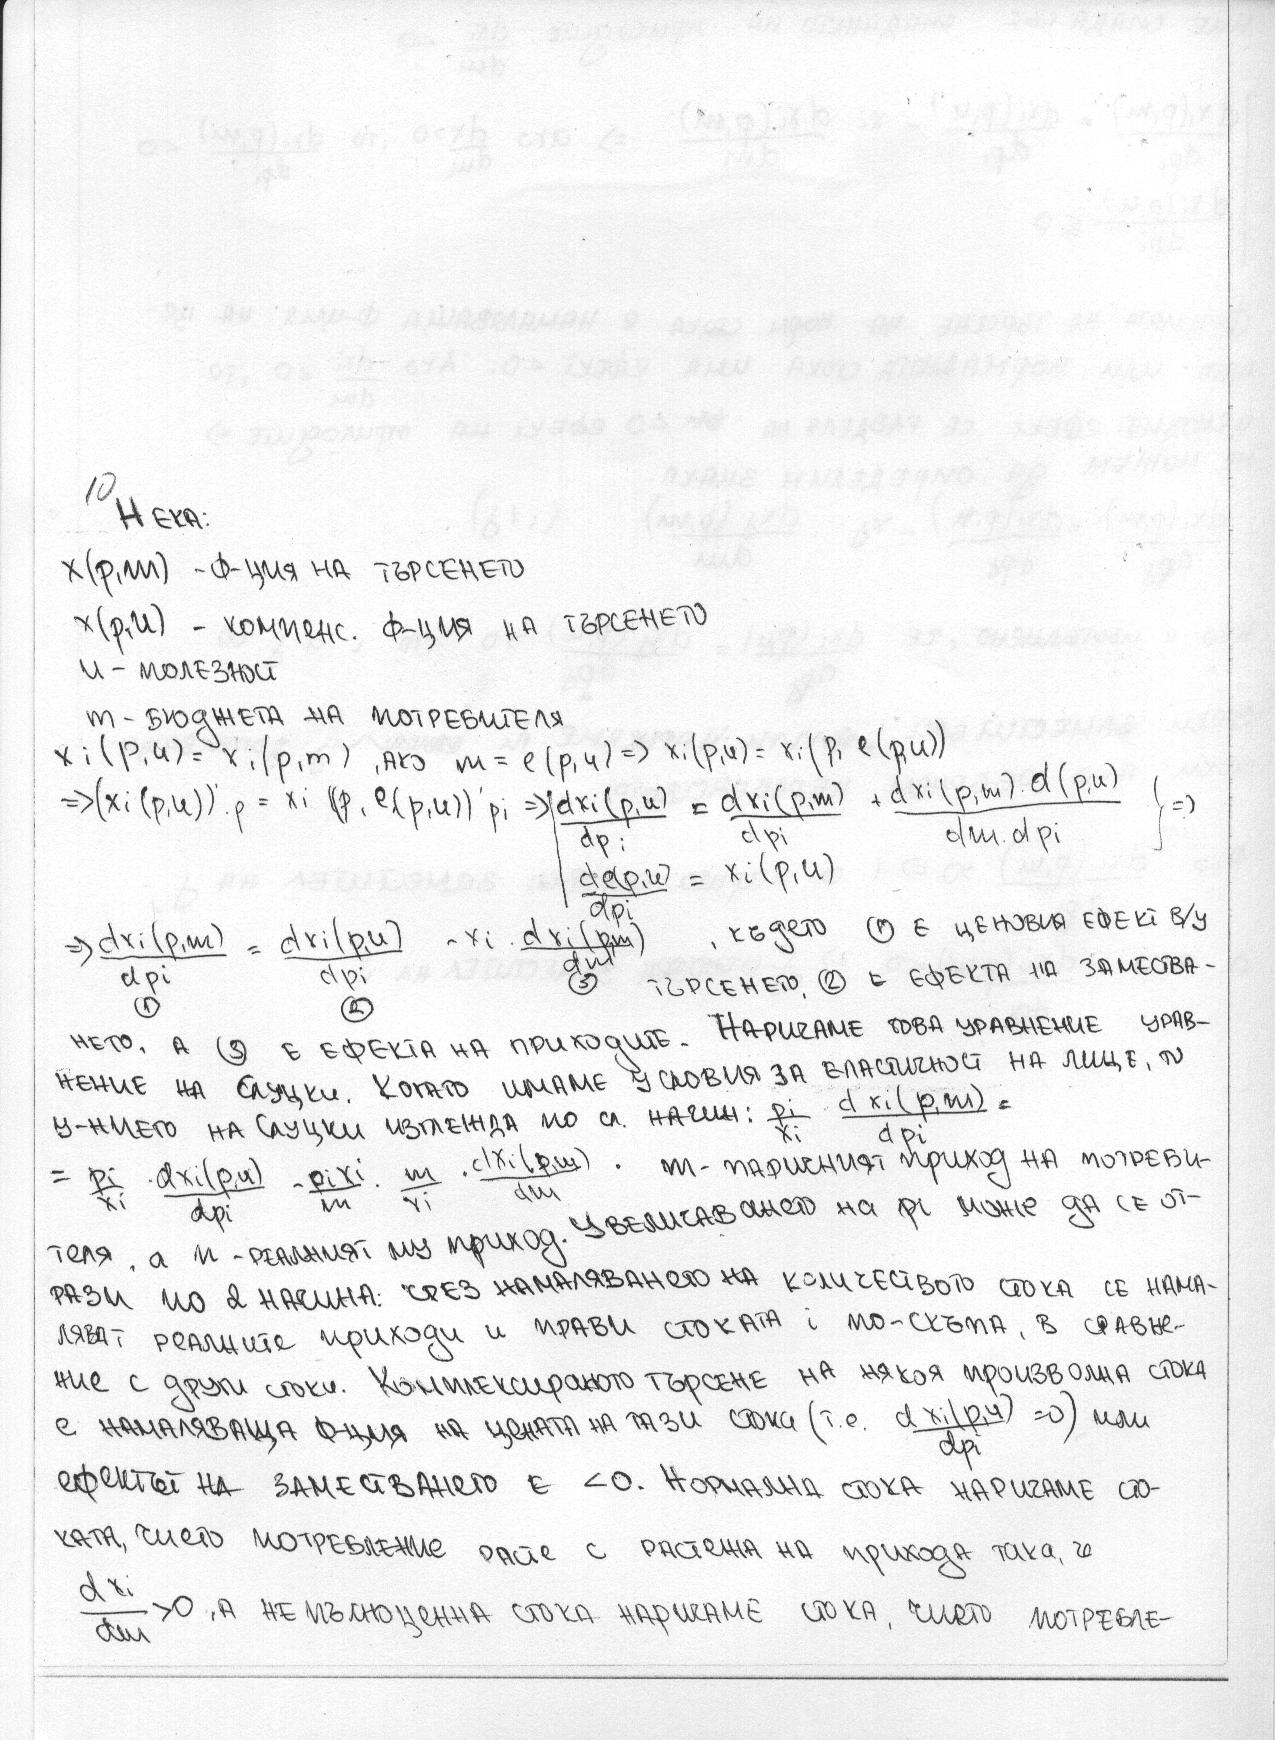 10
Нека:
x(p,m) - ф-ция на търсенето
x(p,u) - компенс. ф-ция на търсенето
u - молезност
m - бюджета на потребителя
xi(p,u) = xi(p,m), ако m = e(p,u) => xi(p,u) = xi(p, e(p,u))
=> (xi(p,u))'p = xi (p, e(p,u))'pi => | dxi(p,u)/dpi = dxi(p,m)/dpi + dxi(p,m).d(p,u)/dm.dpi } =>
de(p,u)/dpi = xi(p,u)
=> dxi(p,m)/dpi = dxi(p,u)/dpi - xi . dxi(p,m)/dm , където ① е ценовия ефект в/у
① ② ③ търсенето, ② е ефекта на замества-
нето, а ③ е ефекта на приходите. Наричаме това уравнение урав-
нение на Слуцки. Когато имаме условия за еластичност на лице, то
у-нието на Слуцки изглежда по сл. начин: pi/xi . dxi(p,m)/dpi =
= pi/xi . dxi(p,u)/dpi - pixi/m . m/xi . dxi(p,m)/dm . m - паричният приход на потреби-
теля, а u - реалният му приход. Увеличаването на pi може да се от-
рази по 2 начина: чрез намаляването на количеството стока се нама-
ляват реалните приходи и прави стоката i по-скъпа, в сравне-
ние с други стоки. Комплексираното търсене на някоя произволна стока
е намаляваща ф-ция на цената на тази стока (т.е. dxi(p,u)/dpi =0) или
ефектът на заместването е <0. Нормална стока наричаме сто-
ката, чието потребление расте с растежа на прихода така, че
dxi/dm >0, а непълноценна стока наричаме стока, чието потребле-